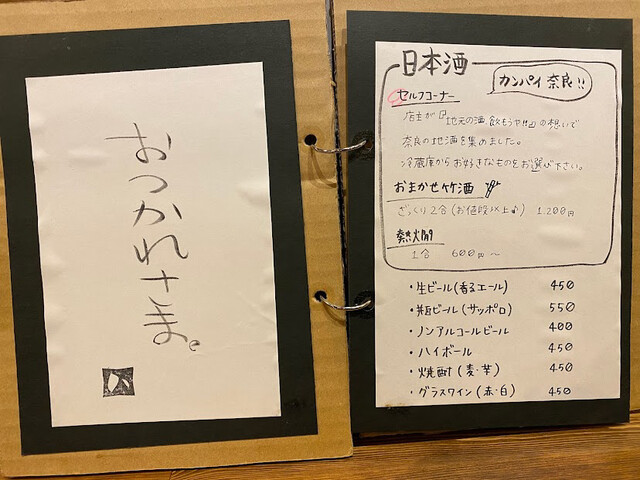 おつかれさま。
日本酒
カンパイ奈良!!
セルフコーナー
店主が『地元の酒、飲もうや!!』の想いで
奈良の地酒を集めました。
冷蔵庫からお好きなものをお選び下さい。
おまかせ竹酒
ざっくり2合(お値段以上♪) 1.200円
熱燗
1合 600円〜
・生ビール(香るエール) 450
・瓶ビール(サッポロ) 550
・ノンアルコールビール 400
・ハイボール 450
・焼酎(麦・芋) 450
・グラスワイン(赤・白) 450